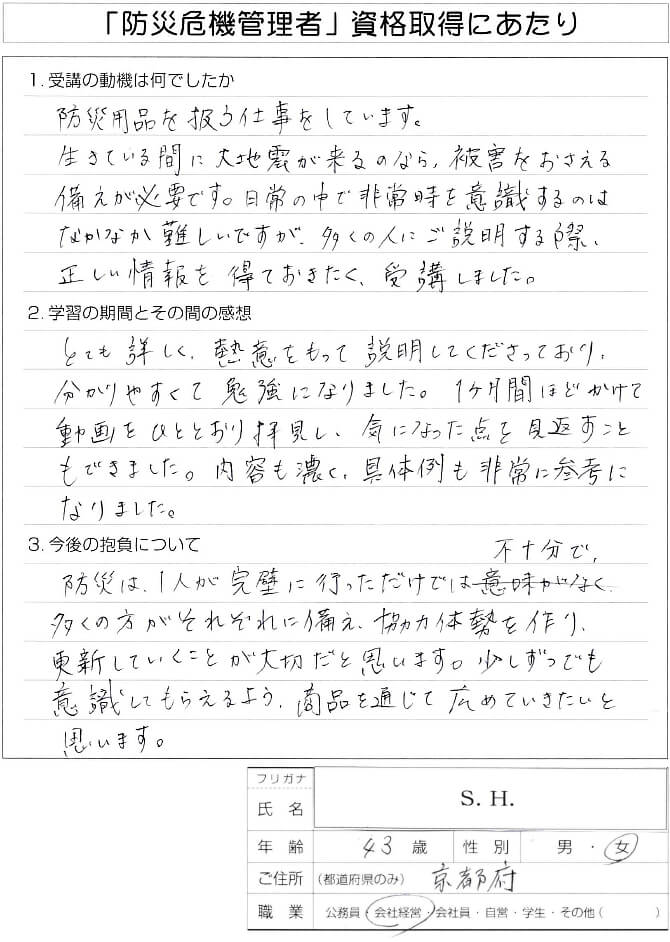 「防災危機管理者」資格取得にあたり
1.受講の動機は何でしたか
防災用品を扱う仕事をしています。
生きている間に大地震が来るのなら、被害をおさえる
備えが必要です。日常の中で非常時を意識するのは
なかなか難しいですが、多くの人にご説明する際、
正しい情報を得ておきたく、受講しました。
2.学習の期間とその間の感想
とても詳しく、熱意をもって説明してくださっており、
分かりやすくて勉強になりました。1ケ月間ほどかけて
動画をひととおり拝見し、気になった点を見返すこと
もできました。内容も濃く、具体例も非常に参考に
なりました。
3.今後の抱負について
不十分で、
防災は、1人が完璧に行っただけでは意味がなく
多くの方がそれぞれに備え、協力体勢を作り、
更新していくことが大切だと思います。少しずつでも
意識してもらえるよう、商品を通じて広めていきたいと
思います。
フリガナ
氏名 S. H.
年齢 43歳 性別 男・女
ご住所 (都道府県のみ) 京都府
職業 公務員・会社経営・会社員・自営・学生・その他( )